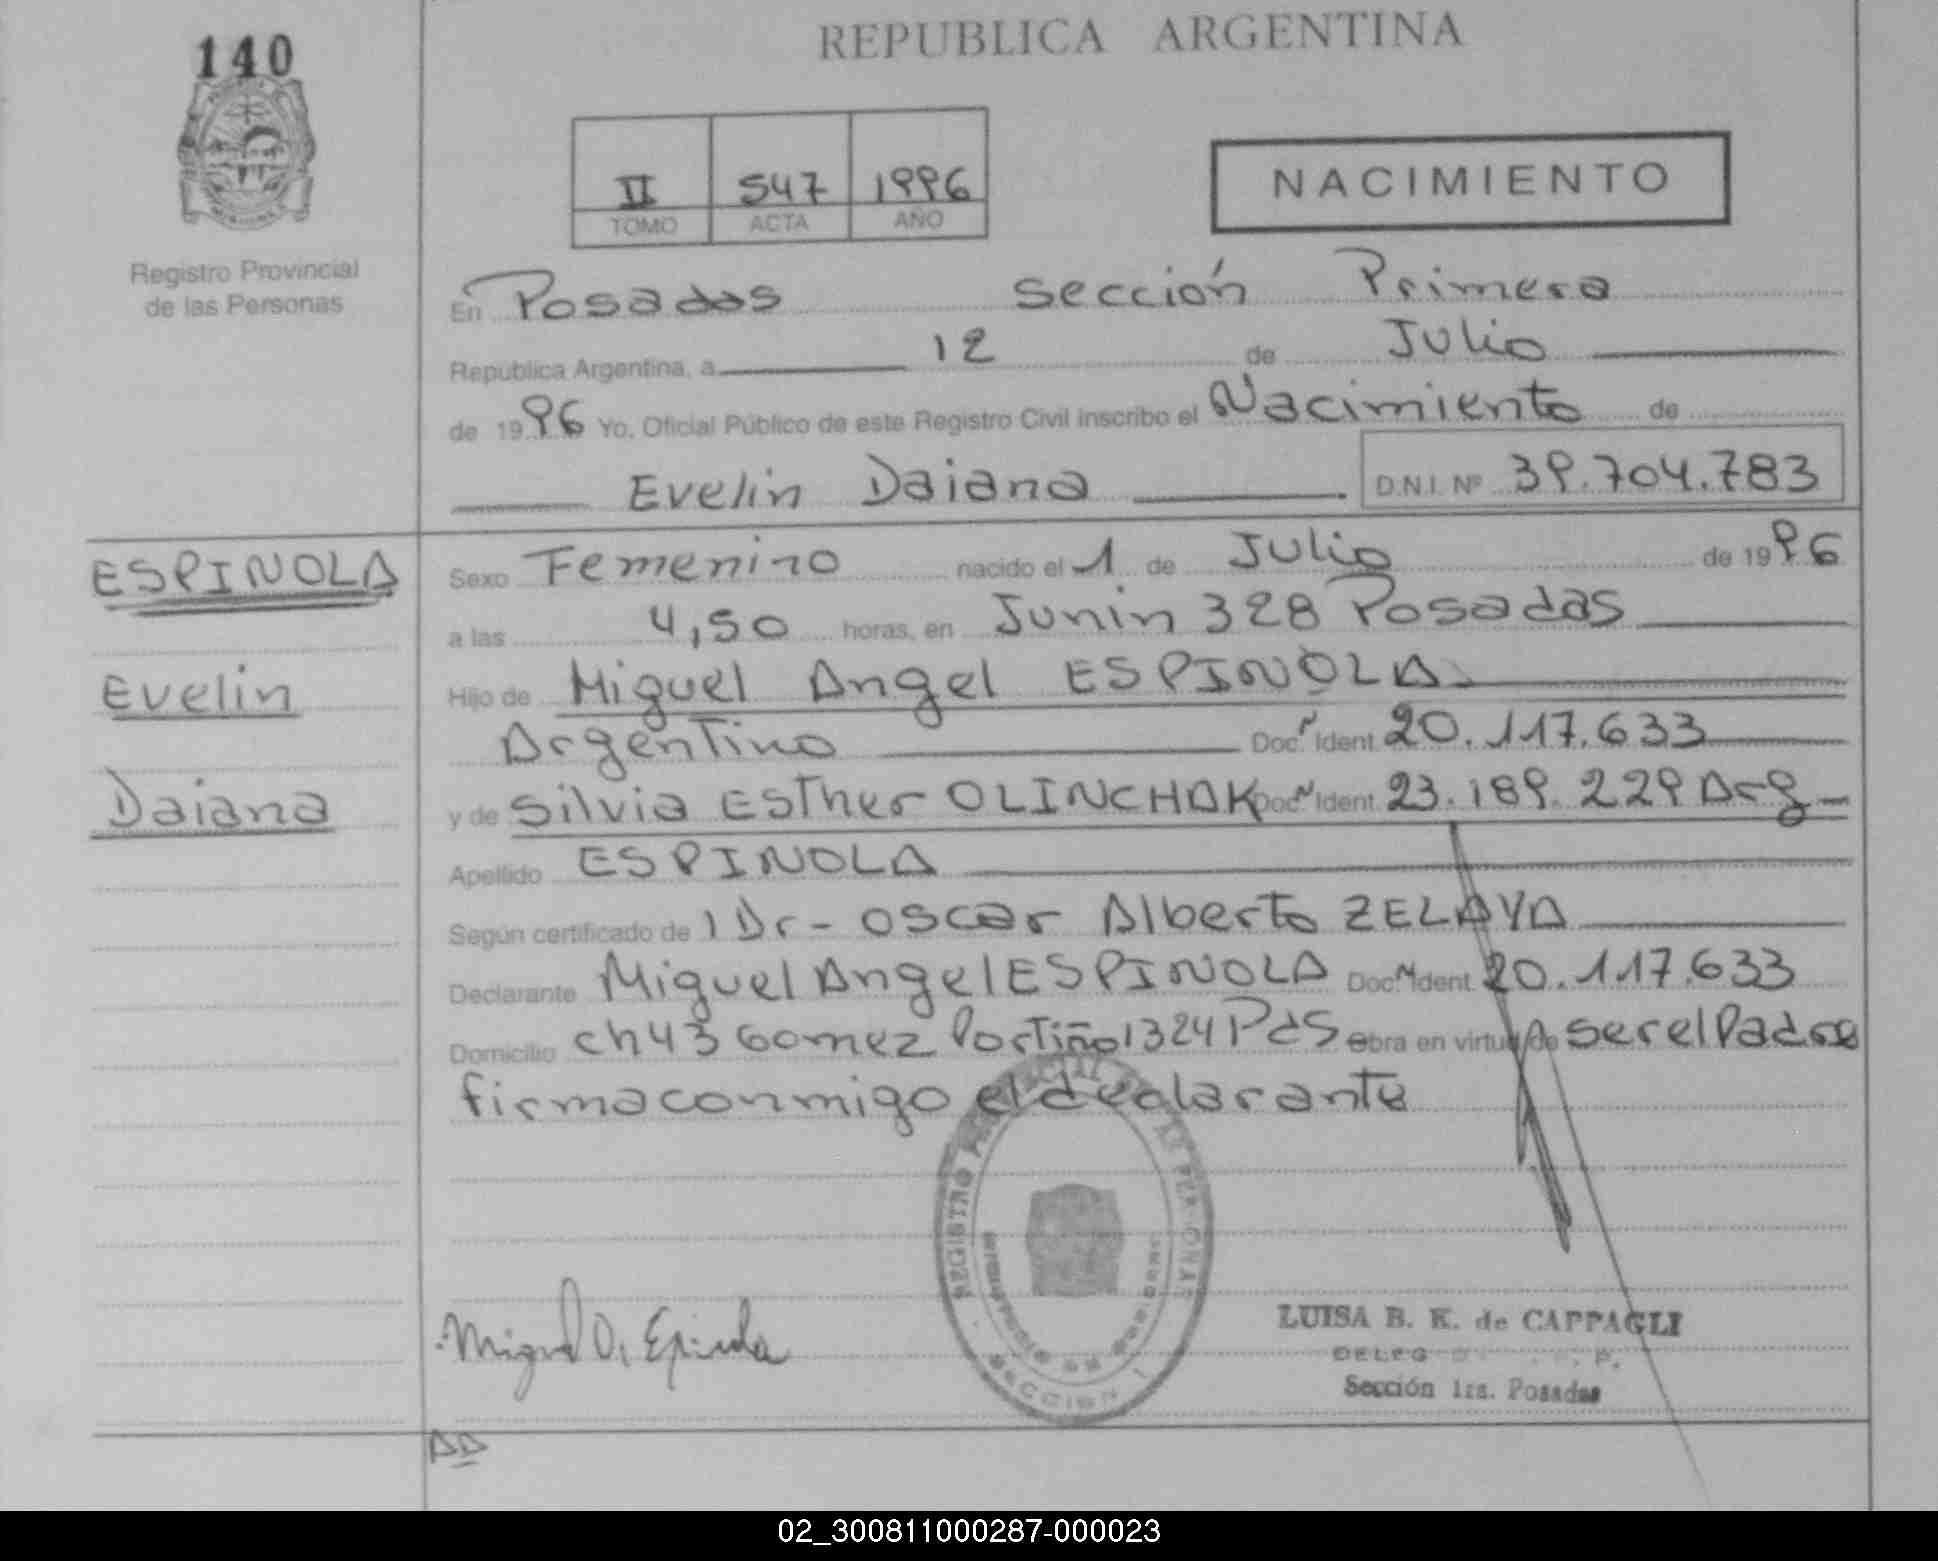 140
REPUBLICA ARGENTINA
II 547 1996
TOMO ACTA AÑO
NACIMIENTO
Registro Provincial
de las Personas
En Posadas sección Primera
República Argentina, a 12 de Julio
de 1996 Yo, Oficial Público de este Registro Civil inscribo el Nacimiento de
Evelin Daiana D.N.I. Nº 39.704.783
ESPINOLA
Evelin
Daiana
Sexo Femenino nacido el 1 de Julio de 1996
a las 4,50 horas, en Junin 328 Posadas
Hijo de Miguel Angel ESPINOLA
Argentino Doc. Ident. 20.117.633
y de Silvia Esther OLINCHAK Doc. Ident. 23.189.229 Arg
Apellido ESPINOLA
Según certificado de l Dr- Oscar Alberto ZELAYA
Declarante Miguel Angel ESPINOLA Doc. Ident. 20.117.633
Domicilio ch 43 Gomez Portiño 1324 Pds Obra en virtud de ser el Padre
firma conmigo el declarante
REGISTRO PROVINCIAL DE LAS PERSONAS
SECCION 1
Miguel A. Espinola
LUISA B. K. de CAPPAGLI
Sección 1ra. Posadas
AD
02_300811000287-000023